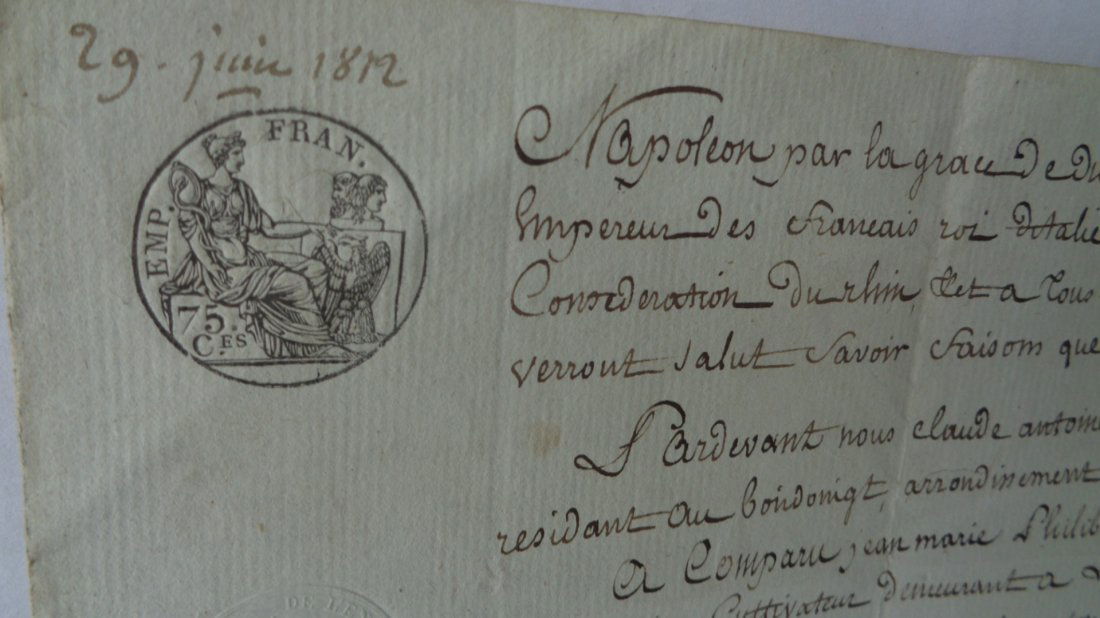 29. juin 1812
EMP. FRAN.
75.
C.ES
Napoleon par la grace de
Empereur des francais roi ditalie
Confederation du rhin, et a tous
verront salut savoir faisom que
Pardevant nous claude antoine
residant au arrondissement
A Comparu jean marie Philib
Cultivateur demeurant a
DE L'EN